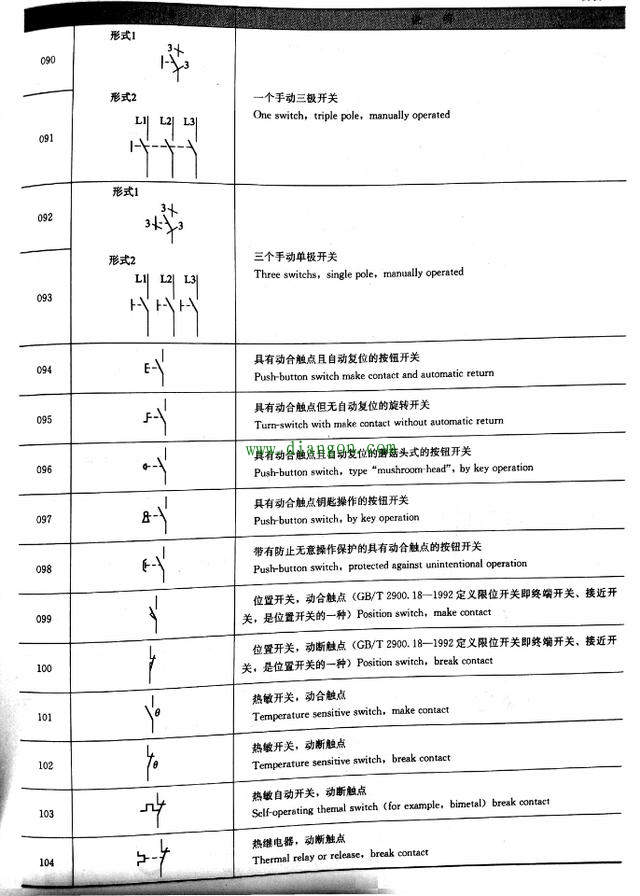 说 明
090
形式1
3
3
091
形式2
L1 L2 L3
一个手动三极开关
One switch, triple pole, manually operated
092
形式1
3
3 3
093
形式2
L1 L2 L3
三个手动单极开关
Three switchs, single pole, manually operated
094
具有动合触点且自动复位的按钮开关
Push-button switch make contact and automatic return
095
具有动合触点但无自动复位的旋转开关
Turn-switch with make contact without automatic return
www.diangon.com
096
具有动合触点且自动复位的蘑菇头式的按钮开关
Push-button switch, type “mushroom-head”, by key operation
097
具有动合触点钥匙操作的按钮开关
Push-button switch, by key operation
098
带有防止无意操作保护的具有动合触点的按钮开关
Push-button switch, protected against unintentional operation
099
位置开关，动合触点（GB/T 2900.18—1992 定义限位开关即终端开关、接近开
关，是位置开关的一种）Position switch, make contact
100
位置开关，动断触点（GB/T 2900.18—1992 定义限位开关即终端开关、接近开
关，是位置开关的一种）Position switch, break contact
101
θ
热敏开关，动合触点
Temperature sensitive switch, make contact
102
θ
热敏开关，动断触点
Temperature sensitive switch, break contact
103
热敏自动开关，动断触点
Self-operating themal switch (for example, bimetal) break contact
104
热继电器，动断触点
Thermal relay or release, break contact